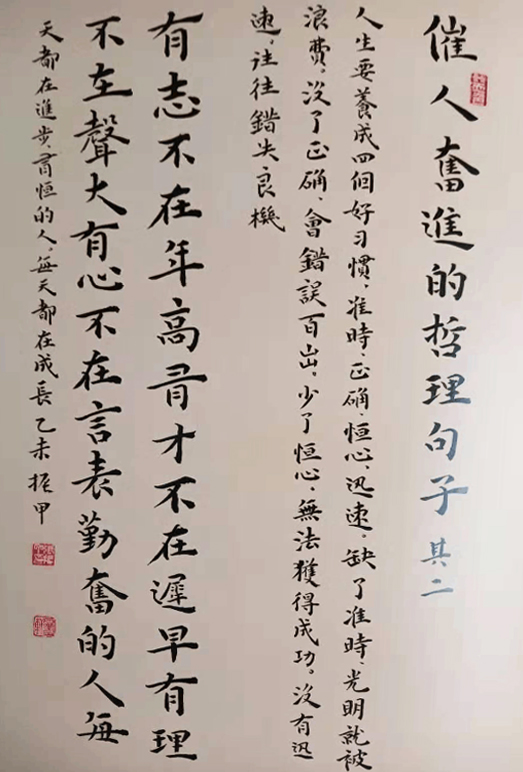 催人奮進的哲理句子 其二
人生要養成四個好习慣，准時、正确、恒心、迅速，缺了准時、光明就被
浪費。沒了正确、會錯誤百出。少了恒心、無法獲得成功。沒有迅
速，往往錯失良機
有志不在年高有才不在遲早有理
不在聲大有心不在言表勤奮的人每
天都在進步有恒的人，每天都在成長乙未振甲